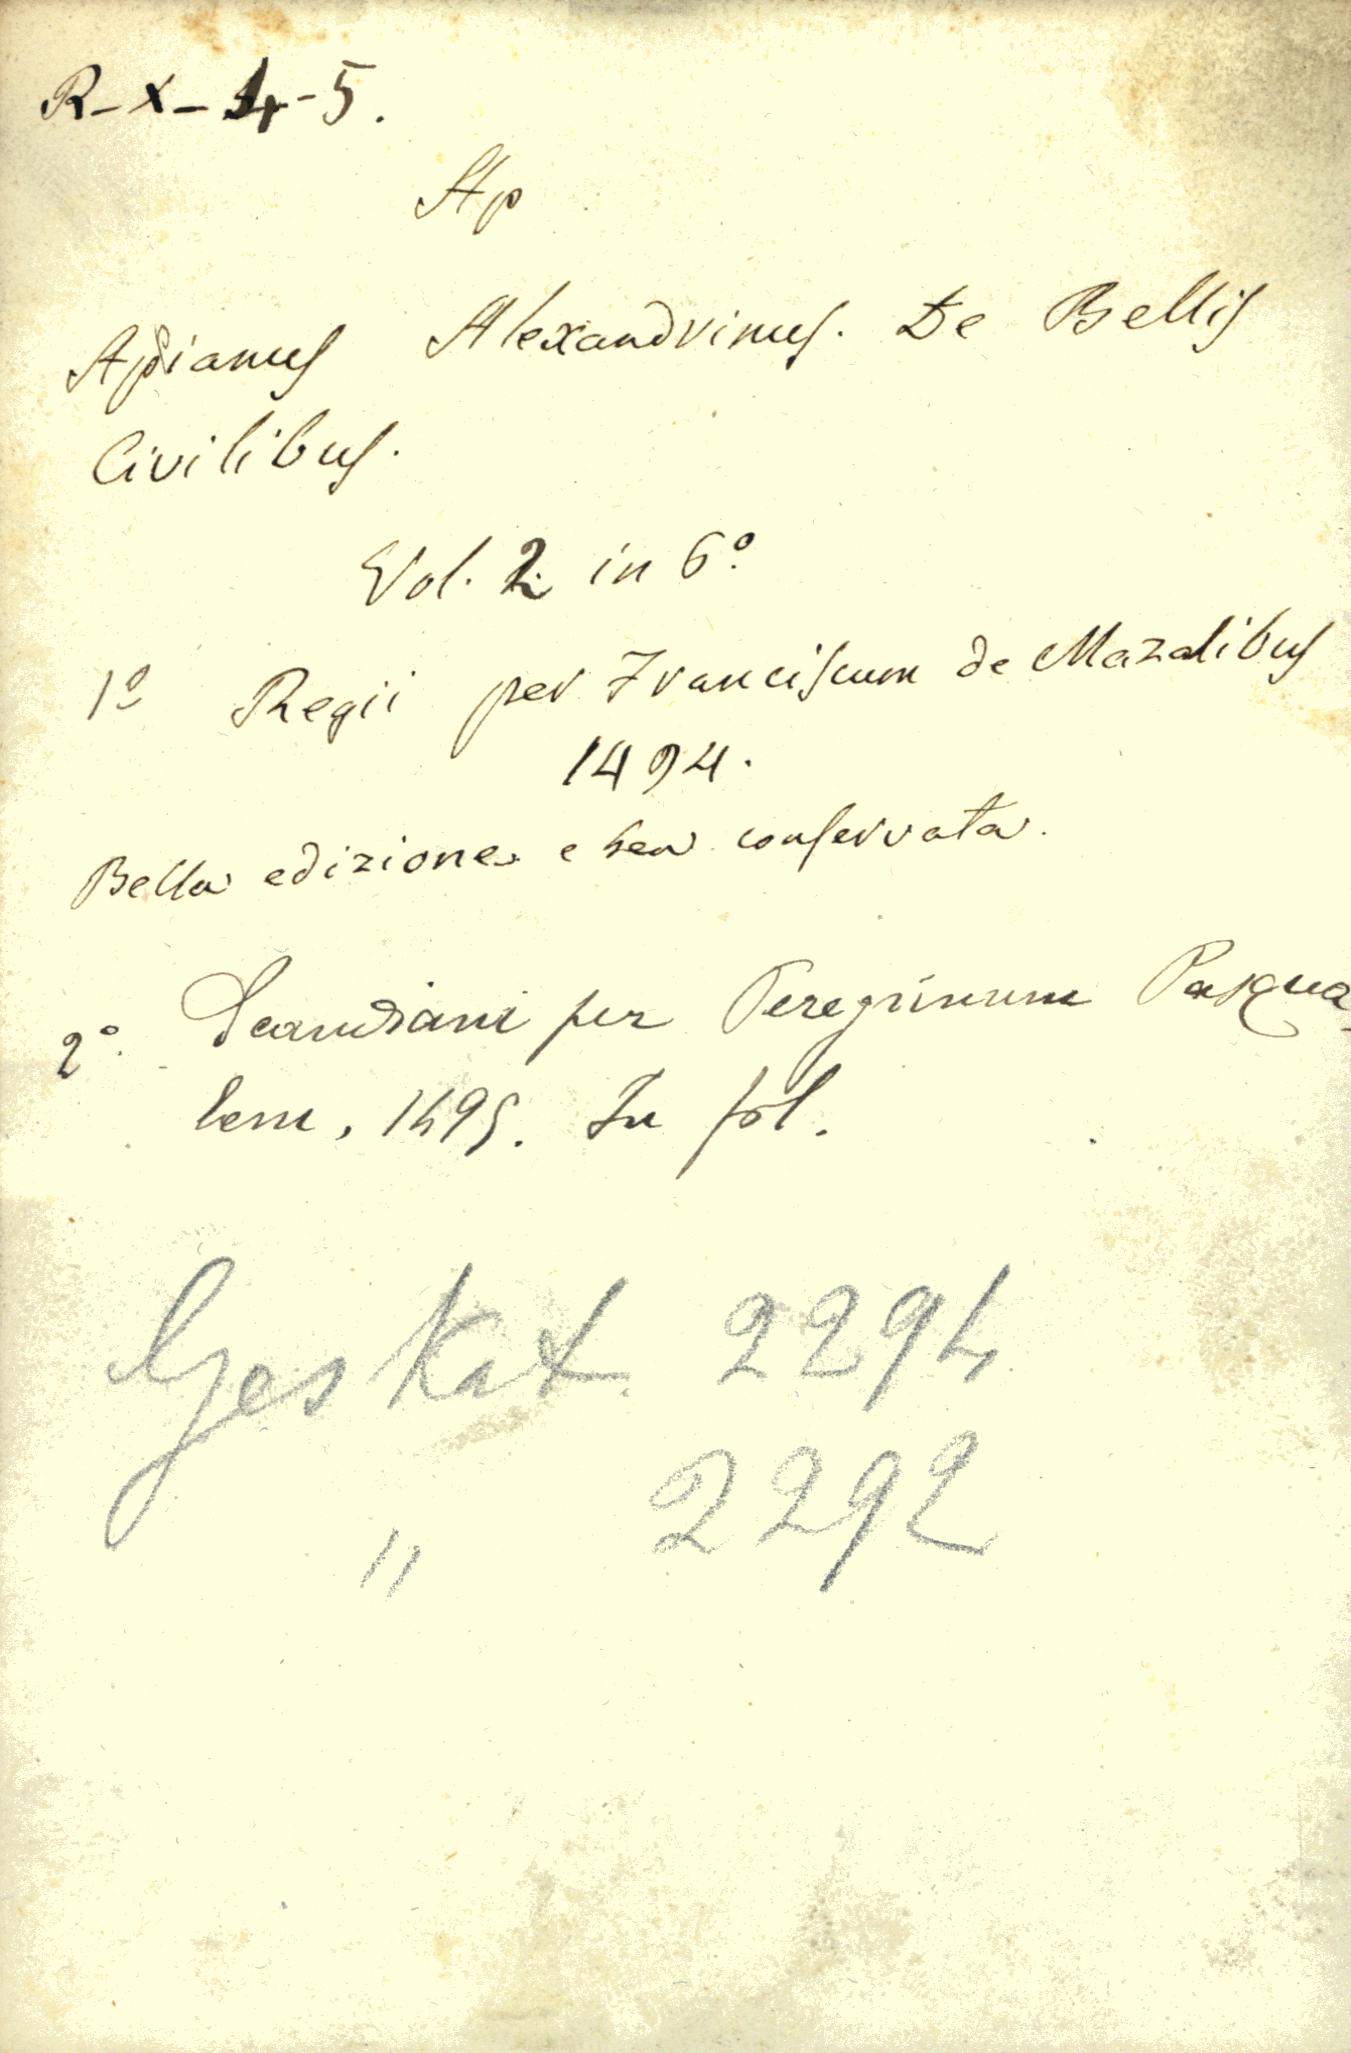 R-X-4-5.
Ap
Appianus Alexandrinus. De Bellis
Civilibus.
Vol. 2 in 6º
1º Regii per Franciscum de Mazalibus
1494.
Bella edizione e ben conservata.
2º. Scandiani per Peregrinum Pasqua-
lem, 1495. In fol.
Ges Kat. 2294
" 2292